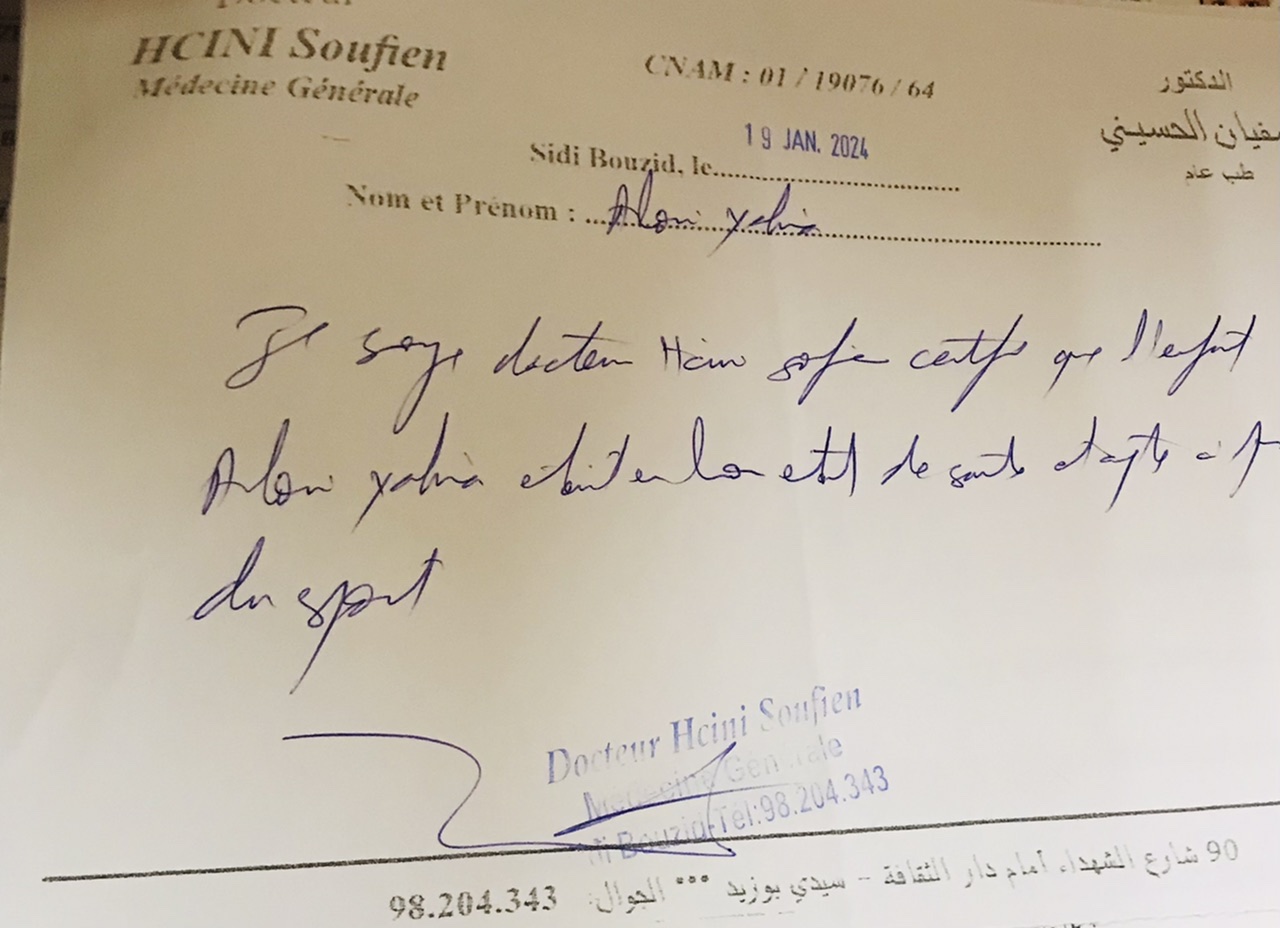 Docteur
HCINI Soufien
Médecine Générale
CNAM : 01 / 19076 / 64
الدكتور
سفيان الحسيني
طب عام
19 JAN. 2024
Sidi Bouzid, le
Nom et Prénom : Aloui Yahia
Je docteur Hcini sofien certifie que l'enfant
Aloui Yahia en bon etat de sante et apte a
du sport
Docteur Hcini Soufien
Médecine Générale
di Bouzid-Tél:98.204.343
90 شارع الشهداء أمام دار الثقافة - سيدي بوزيد *** الجوال: 98.204.343